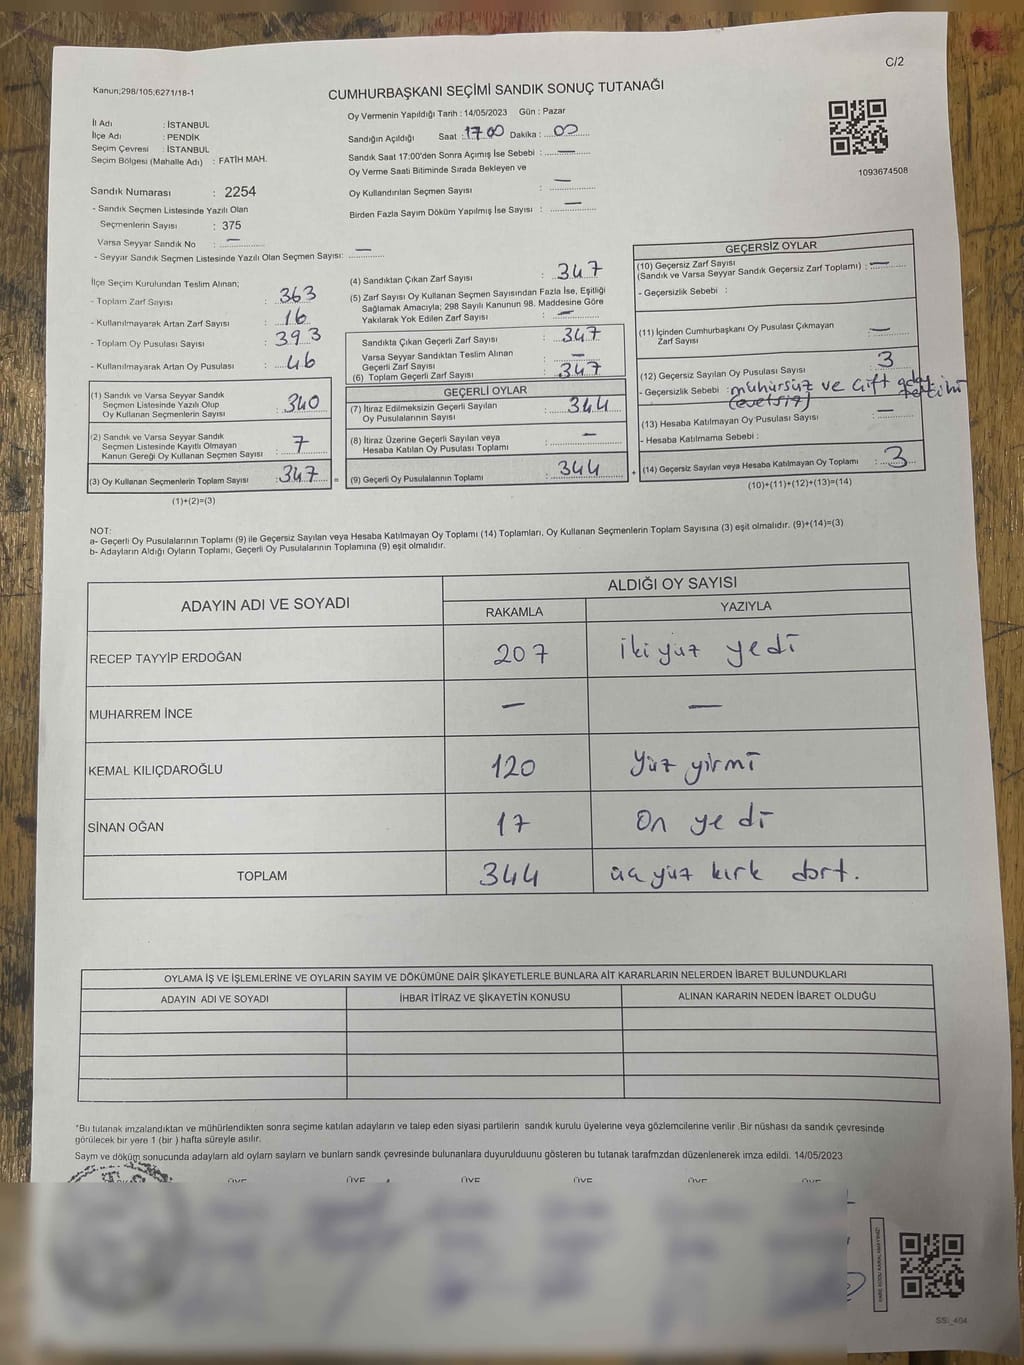 C/2
Kanun;298/105;6271/18-1
CUMHURBAŞKANI SEÇİMİ SANDIK SONUÇ TUTANAĞI
Oy Vermenin Yapıldığı Tarih : 14/05/2023 Gün : Pazar
İl Adı : İSTANBUL
İlçe Adı : PENDİK
Seçim Çevresi : İSTANBUL
Seçim Bölgesi (Mahalle Adı) : FATİH MAH.
Sandığın Açıldığı Saat : 17 00 Dakika : 00
Sandık Saat 17:00'den Sonra Açımış İse Sebebi : —
Oy Verme Saati Bitiminde Sırada Bekleyen ve
Oy Kullandırılan Seçmen Sayısı : —
Birden Fazla Sayım Döküm Yapılmış İse Sayısı : —
1093674508
Sandık Numarası : 2254
- Sandık Seçmen Listesinde Yazılı Olan
Seçmenlerin Sayısı : 375
Varsa Seyyar Sandık No : —
- Seyyar Sandık Seçmen Listesinde Yazılı Olan Seçmen Sayısı: —
İlçe Seçim Kurulundan Teslim Alınan;
- Toplam Zarf Sayısı : 363
- Kullanılmayarak Artan Zarf Sayısı : 16
- Toplam Oy Pusulası Sayısı : 393
- Kullanılmayarak Artan Oy Pusulası : 46
(1) Sandık ve Varsa Seyyar Sandık
Seçmen Listesinde Yazılı Olup
Oy Kullanan Seçmenlerin Sayısı : 340
(2) Sandık ve Varsa Seyyar Sandık
Seçmen Listesinde Kayıtlı Olmayan
Kanun Gereği Oy Kullanan Seçmen Sayısı : 7
(3) Oy Kullanan Seçmenlerin Toplam Sayısı : 347
(1)+(2)=(3)
(4) Sandıktan Çıkan Zarf Sayısı : 347
(5) Zarf Sayısı Oy Kullanan Seçmen Sayısından Fazla İse, Eşitliği
Sağlamak Amacıyla; 298 Sayılı Kanunun 98. Maddesine Göre
Yakılarak Yok Edilen Zarf Sayısı : —
Sandıkta Çıkan Geçerli Zarf Sayısı : 347
Varsa Seyyar Sandıktan Teslim Alınan
Geçerli Zarf Sayısı : —
(6) Toplam Geçerli Zarf Sayısı : 347
GEÇERLİ OYLAR
(7) İtiraz Edilmeksizin Geçerli Sayılan
Oy Pusulalarının Sayısı : 344
(8) İtiraz Üzerine Geçerli Sayılan veya
Hesaba Katılan Oy Pusulası Toplamı : —
= (9) Geçerli Oy Pusulalarının Toplamı : 344 +
GEÇERSİZ OYLAR
(10) Geçersiz Zarf Sayısı
(Sandık ve Varsa Seyyar Sandık Geçersiz Zarf Toplamı) : —
- Geçersizlik Sebebi :
(11) İçinden Cumhurbaşkanı Oy Pusulası Çıkmayan
Zarf Sayısı : —
(12) Geçersiz Sayılan Oy Pusulası Sayısı : 3
- Geçersizlik Sebebi : mühürsüz ve çift
(13) Hesaba Katılmayan Oy Pusulası Sayısı : —
- Hesaba Katılmama Sebebi :
(14) Geçersiz Sayılan veya Hesaba Katılmayan Oy Toplamı : 3
(10)+(11)+(12)+(13)=(14)
NOT:
a- Geçerli Oy Pusulalarının Toplamı (9) ile Geçersiz Sayılan veya Hesaba Katılmayan Oy Toplamı (14) Toplamları, Oy Kullanan Seçmenlerin Toplam Sayısına (3) eşit olmalıdır. (9)+(14)=(3)
b- Adayların Aldığı Oyların Toplamı, Geçerli Oy Pusulalarının Toplamına (9) eşit olmalıdır.
ADAYIN ADI VE SOYADI ALDIĞI OY SAYISI
RAKAMLA YAZIYLA
RECEP TAYYİP ERDOĞAN 207 İki yüz yedi
MUHARREM İNCE — —
KEMAL KILIÇDAROĞLU 120 Yüz yirmi
SİNAN OĞAN 17 On yedi
TOPLAM 344 üç yüz kırk dört.
OYLAMA İŞ VE İŞLEMLERİNE VE OYLARIN SAYIM VE DÖKÜMÜNE DAİR ŞİKAYETLERLE BUNLARA AİT KARARLARIN NELERDEN İBARET BULUNDUKLARI
ADAYIN ADI VE SOYADI İHBAR İTİRAZ VE ŞİKAYETİN KONUSU ALINAN KARARIN NEDEN İBARET OLDUĞU
"Bu tutanak imzalandıktan ve mühürlendikten sonra seçime katılan adayların ve talep eden siyasi partilerin sandık kurulu üyelerine veya gözlemcilerine verilir .Bir nüshası da sandık çevresinde
görülecek bir yere 1 (bir ) hafta süreyle asılır.
Saym ve döküm sonucunda adaylarn ald oylarn saylarn ve bunlarn sandk çevresinde bulunanlara duyurulduunu gösteren bu tutanak tarafmzdan düzenlenerek imza edildi. 14/05/2023
ÜYE ÜYE ÜYE ÜYE ÜYE ÜYE